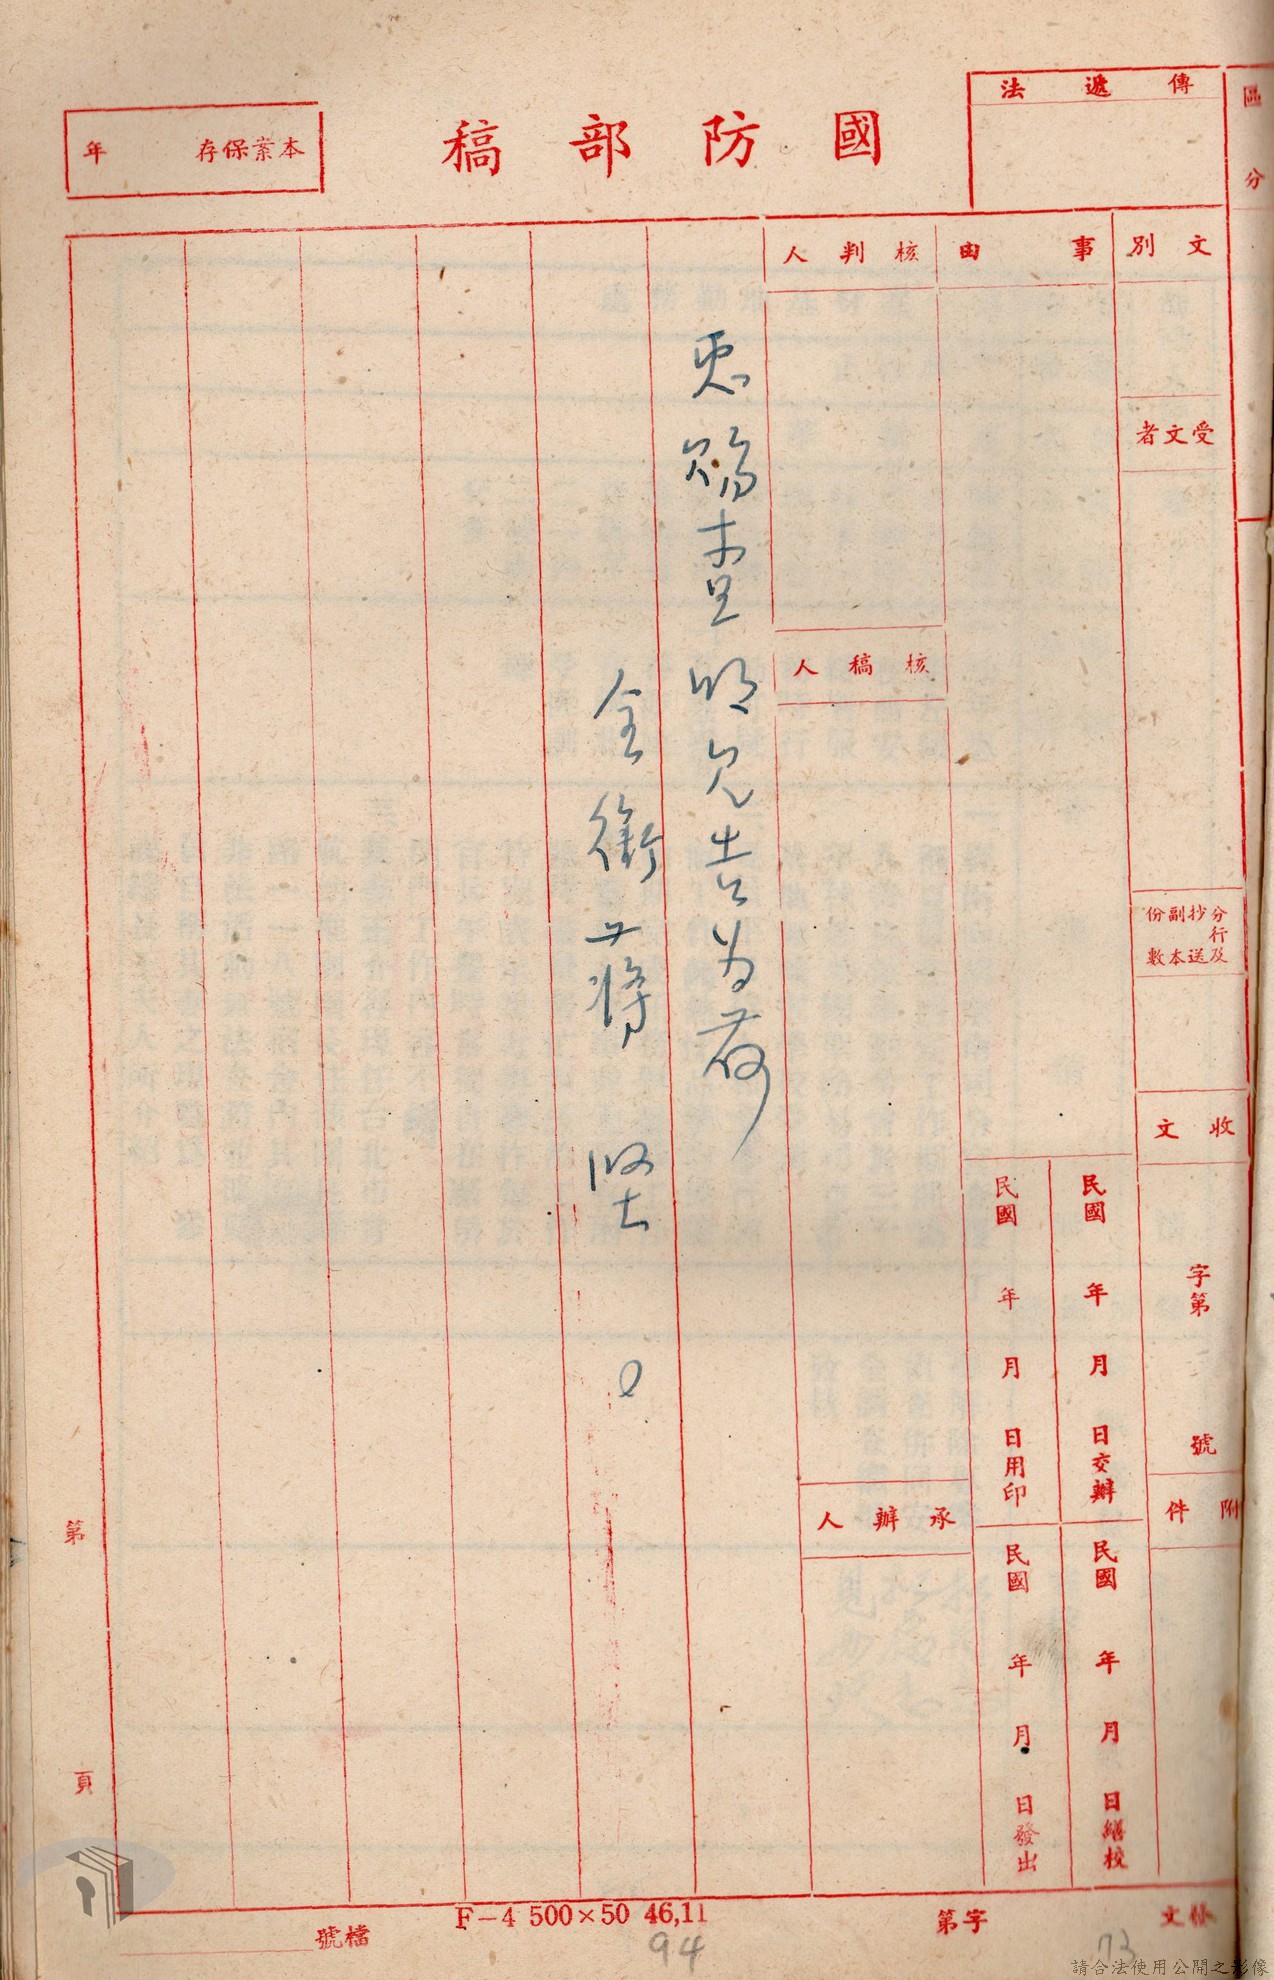 國防部稿
本案保存 年
傳遞法
區分
文別
事由
核判人
受文者
核稿人
分行及抄送副本份數
收文
字第 號
附件
民國 年 月 日交辦
民國 年 月 日用印
民國 年 月 日繕校
民國 年 月 日發出
承辦人
惠賜查明見告為荷
全銜 蔣 堅
第 頁
檔號
F-4 500×50 46,11
字第
94
73
請合法使用公開之影像